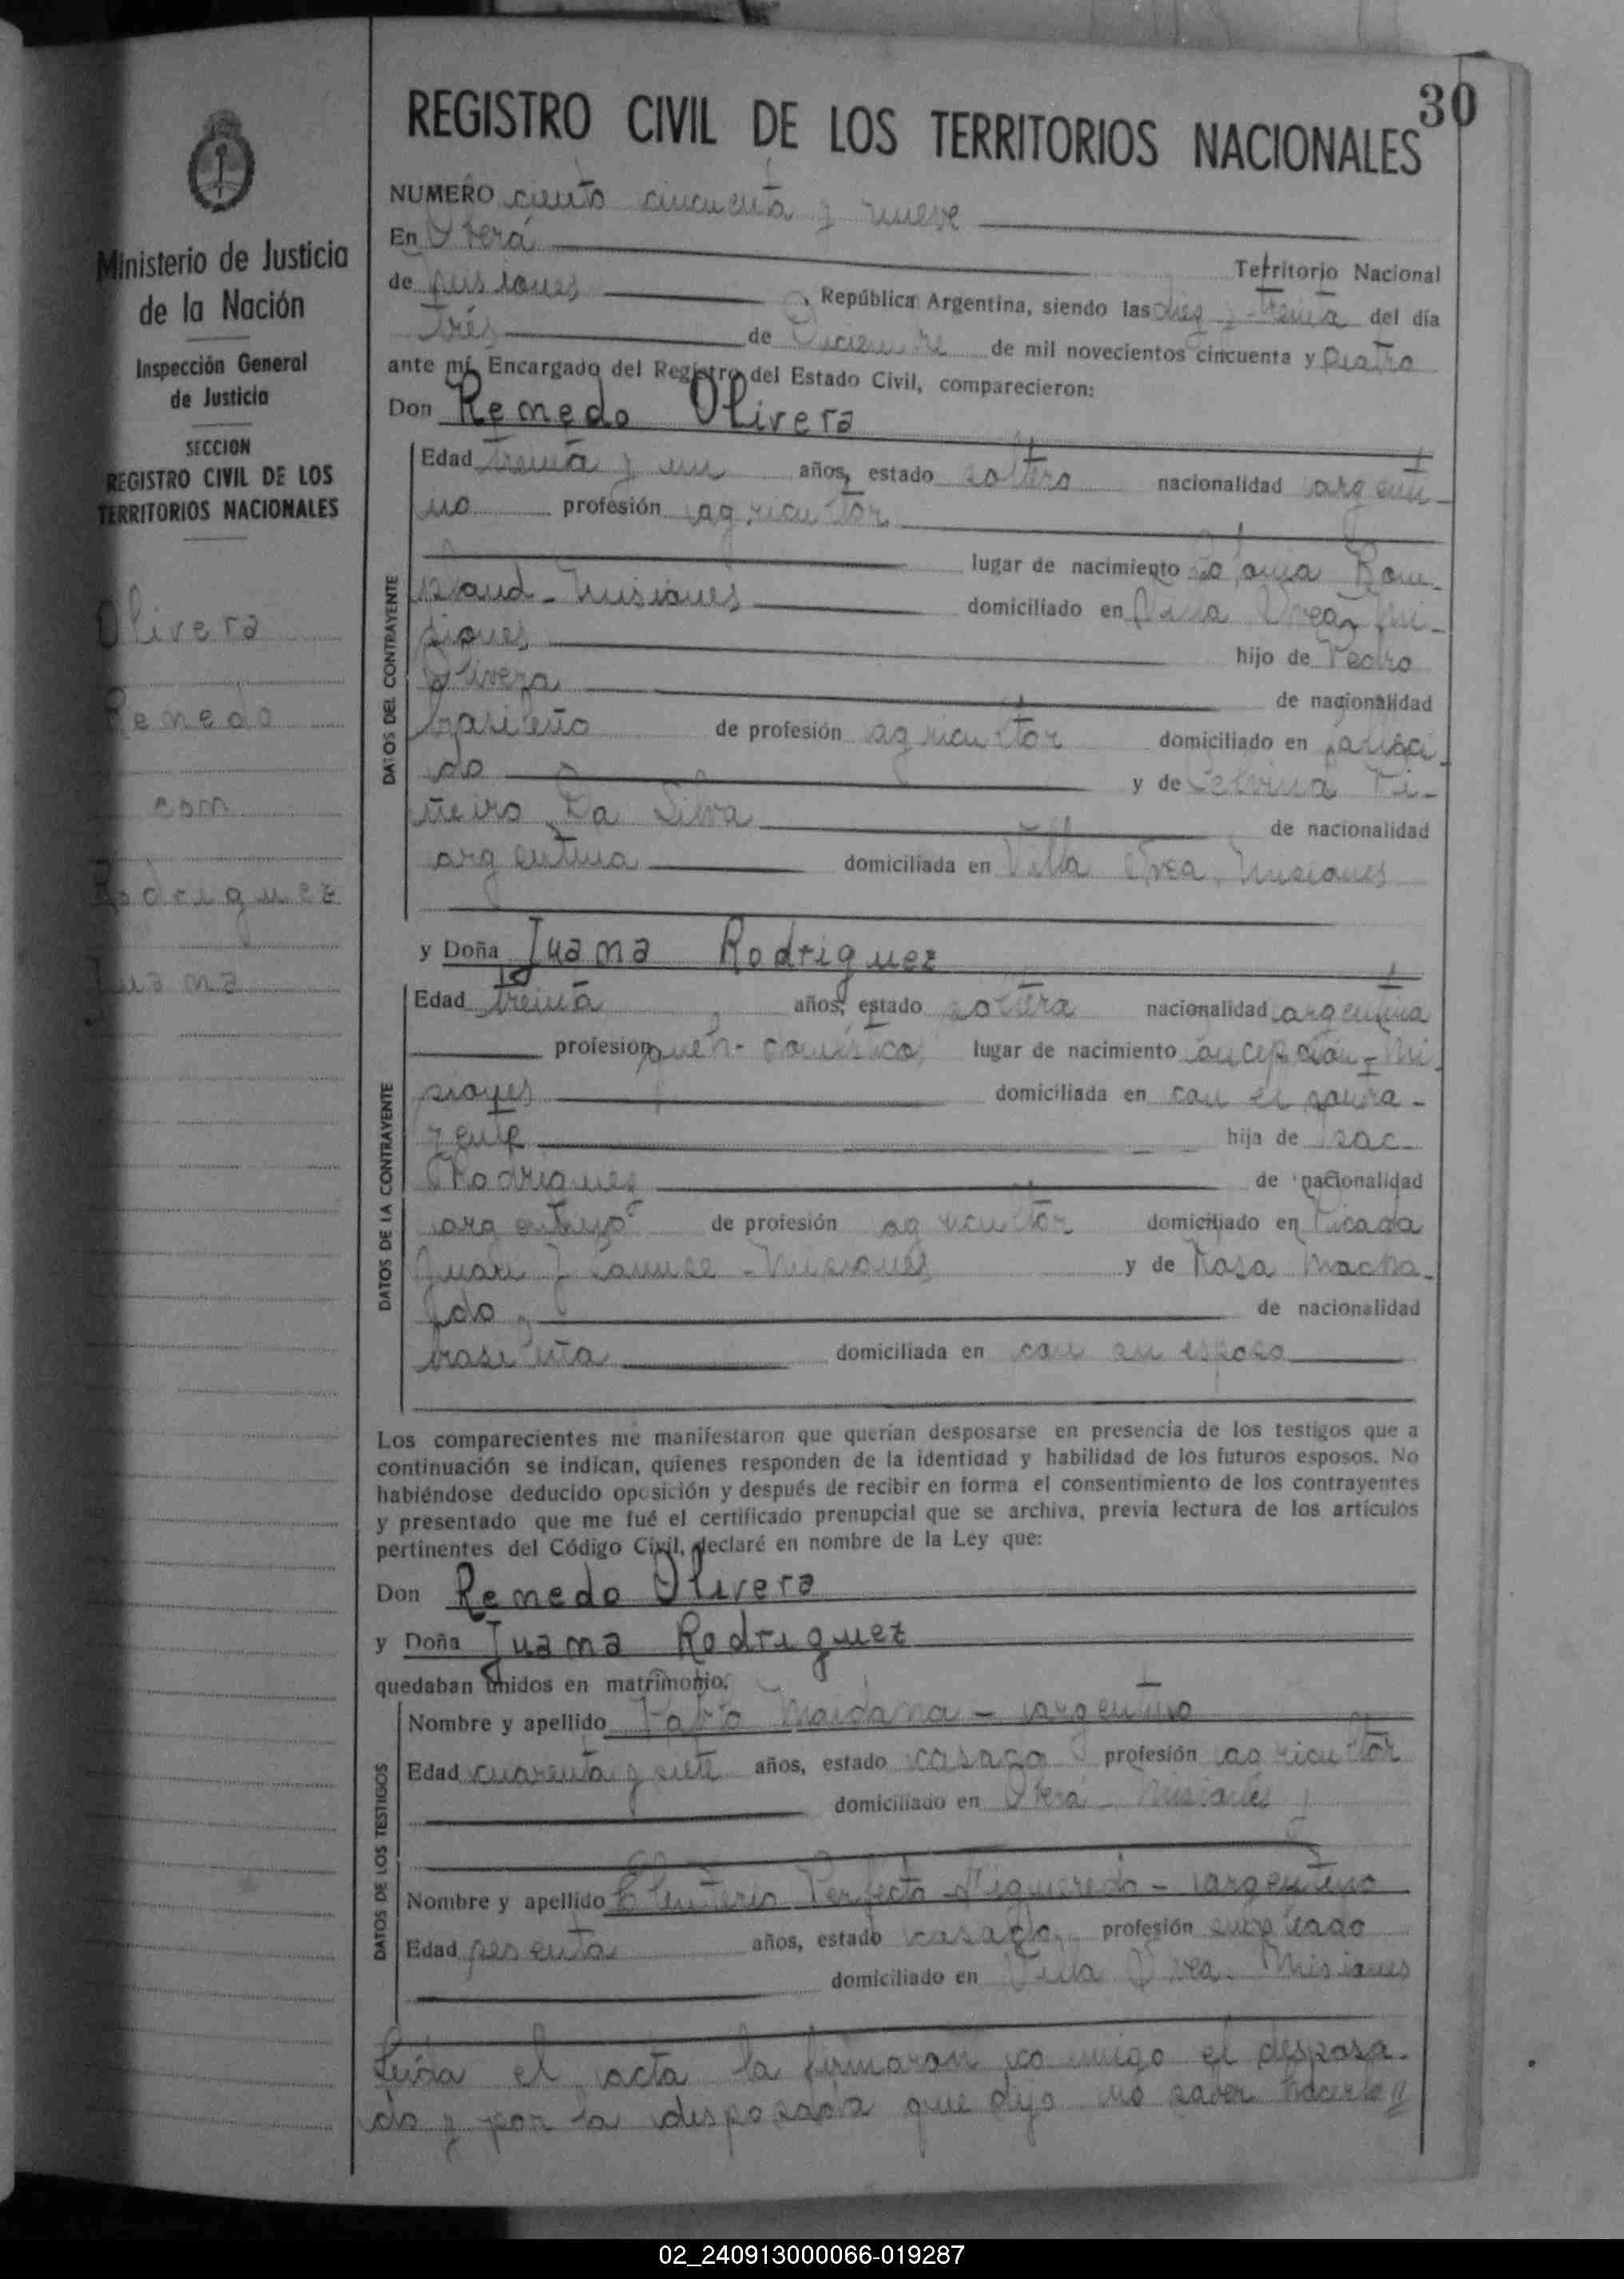 30
REGISTRO CIVIL DE LOS TERRITORIOS NACIONALES
Ministerio de Justicia
de la Nación
Inspección General
de Justicia
SECCION
REGISTRO CIVIL DE LOS
TERRITORIOS NACIONALES
Olivera
Remedo
con
Rodriguez
Juana
NUMERO ciento cincuenta y nueve
En Oberá
Territorio Nacional
de Misiones , República Argentina, siendo las diez y treinta del día
Tres de Diciembre de mil novecientos cincuenta y cuatro
ante mí, Encargado del Registro del Estado Civil, comparecieron:
Don Remedo Olivera
DATOS DEL CONTRAYENTE
Edad treinta y un años, estado soltero nacionalidad argenti-
no profesión agricultor
lugar de nacimiento Colonia Bom-
pland - Misiones domiciliado en Villa Mi-
siones hijo de Pedro
Olivera de nacionalidad
brasileño de profesión agricultor domiciliado en
do y de Pi-
ñeiro Da Silva de nacionalidad
argentina domiciliada en Villa Misiones
y Doña Juana Rodriguez
DATOS DE LA CONTRAYENTE
Edad treinta años, estado soltera nacionalidad argentina
profesión lugar de nacimiento Concepción - Mi
siones domiciliada en con el contra-
yente hija de Isac
Rodrigues de nacionalidad
argentino de profesión agricultor domiciliado en Picada
- Misiones y de Rosa Macha-
do de nacionalidad
brasileña domiciliada en con su esposo
Los comparecientes me manifestaron que querían desposarse en presencia de los testigos que a
continuación se indican, quienes responden de la identidad y habilidad de los futuros esposos. No
habiéndose deducido oposición y después de recibir en forma el consentimiento de los contrayentes
y presentado que me fué el certificado prenupcial que se archiva, previa lectura de los artículos
pertinentes del Código Civil, declaré en nombre de la Ley que:
Don Remedo Olivera
y Doña Juana Rodriguez
quedaban unidos en matrimonio.
DATOS DE LOS TESTIGOS
Nombre y apellido Maidana - argentino
Edad cuarenta y siete años, estado casado profesión agricultor
domiciliado en Oberá - Misiones
Nombre y apellido Eleuterio Perfecto Figueredo - argentino
Edad sesenta años, estado casado profesión empleado
domiciliado en Villa Misiones
Leida el acta la firmaron conmigo el desposa-
do y por la desposada que dijo no saber hacerlo
02_240913000066-019287